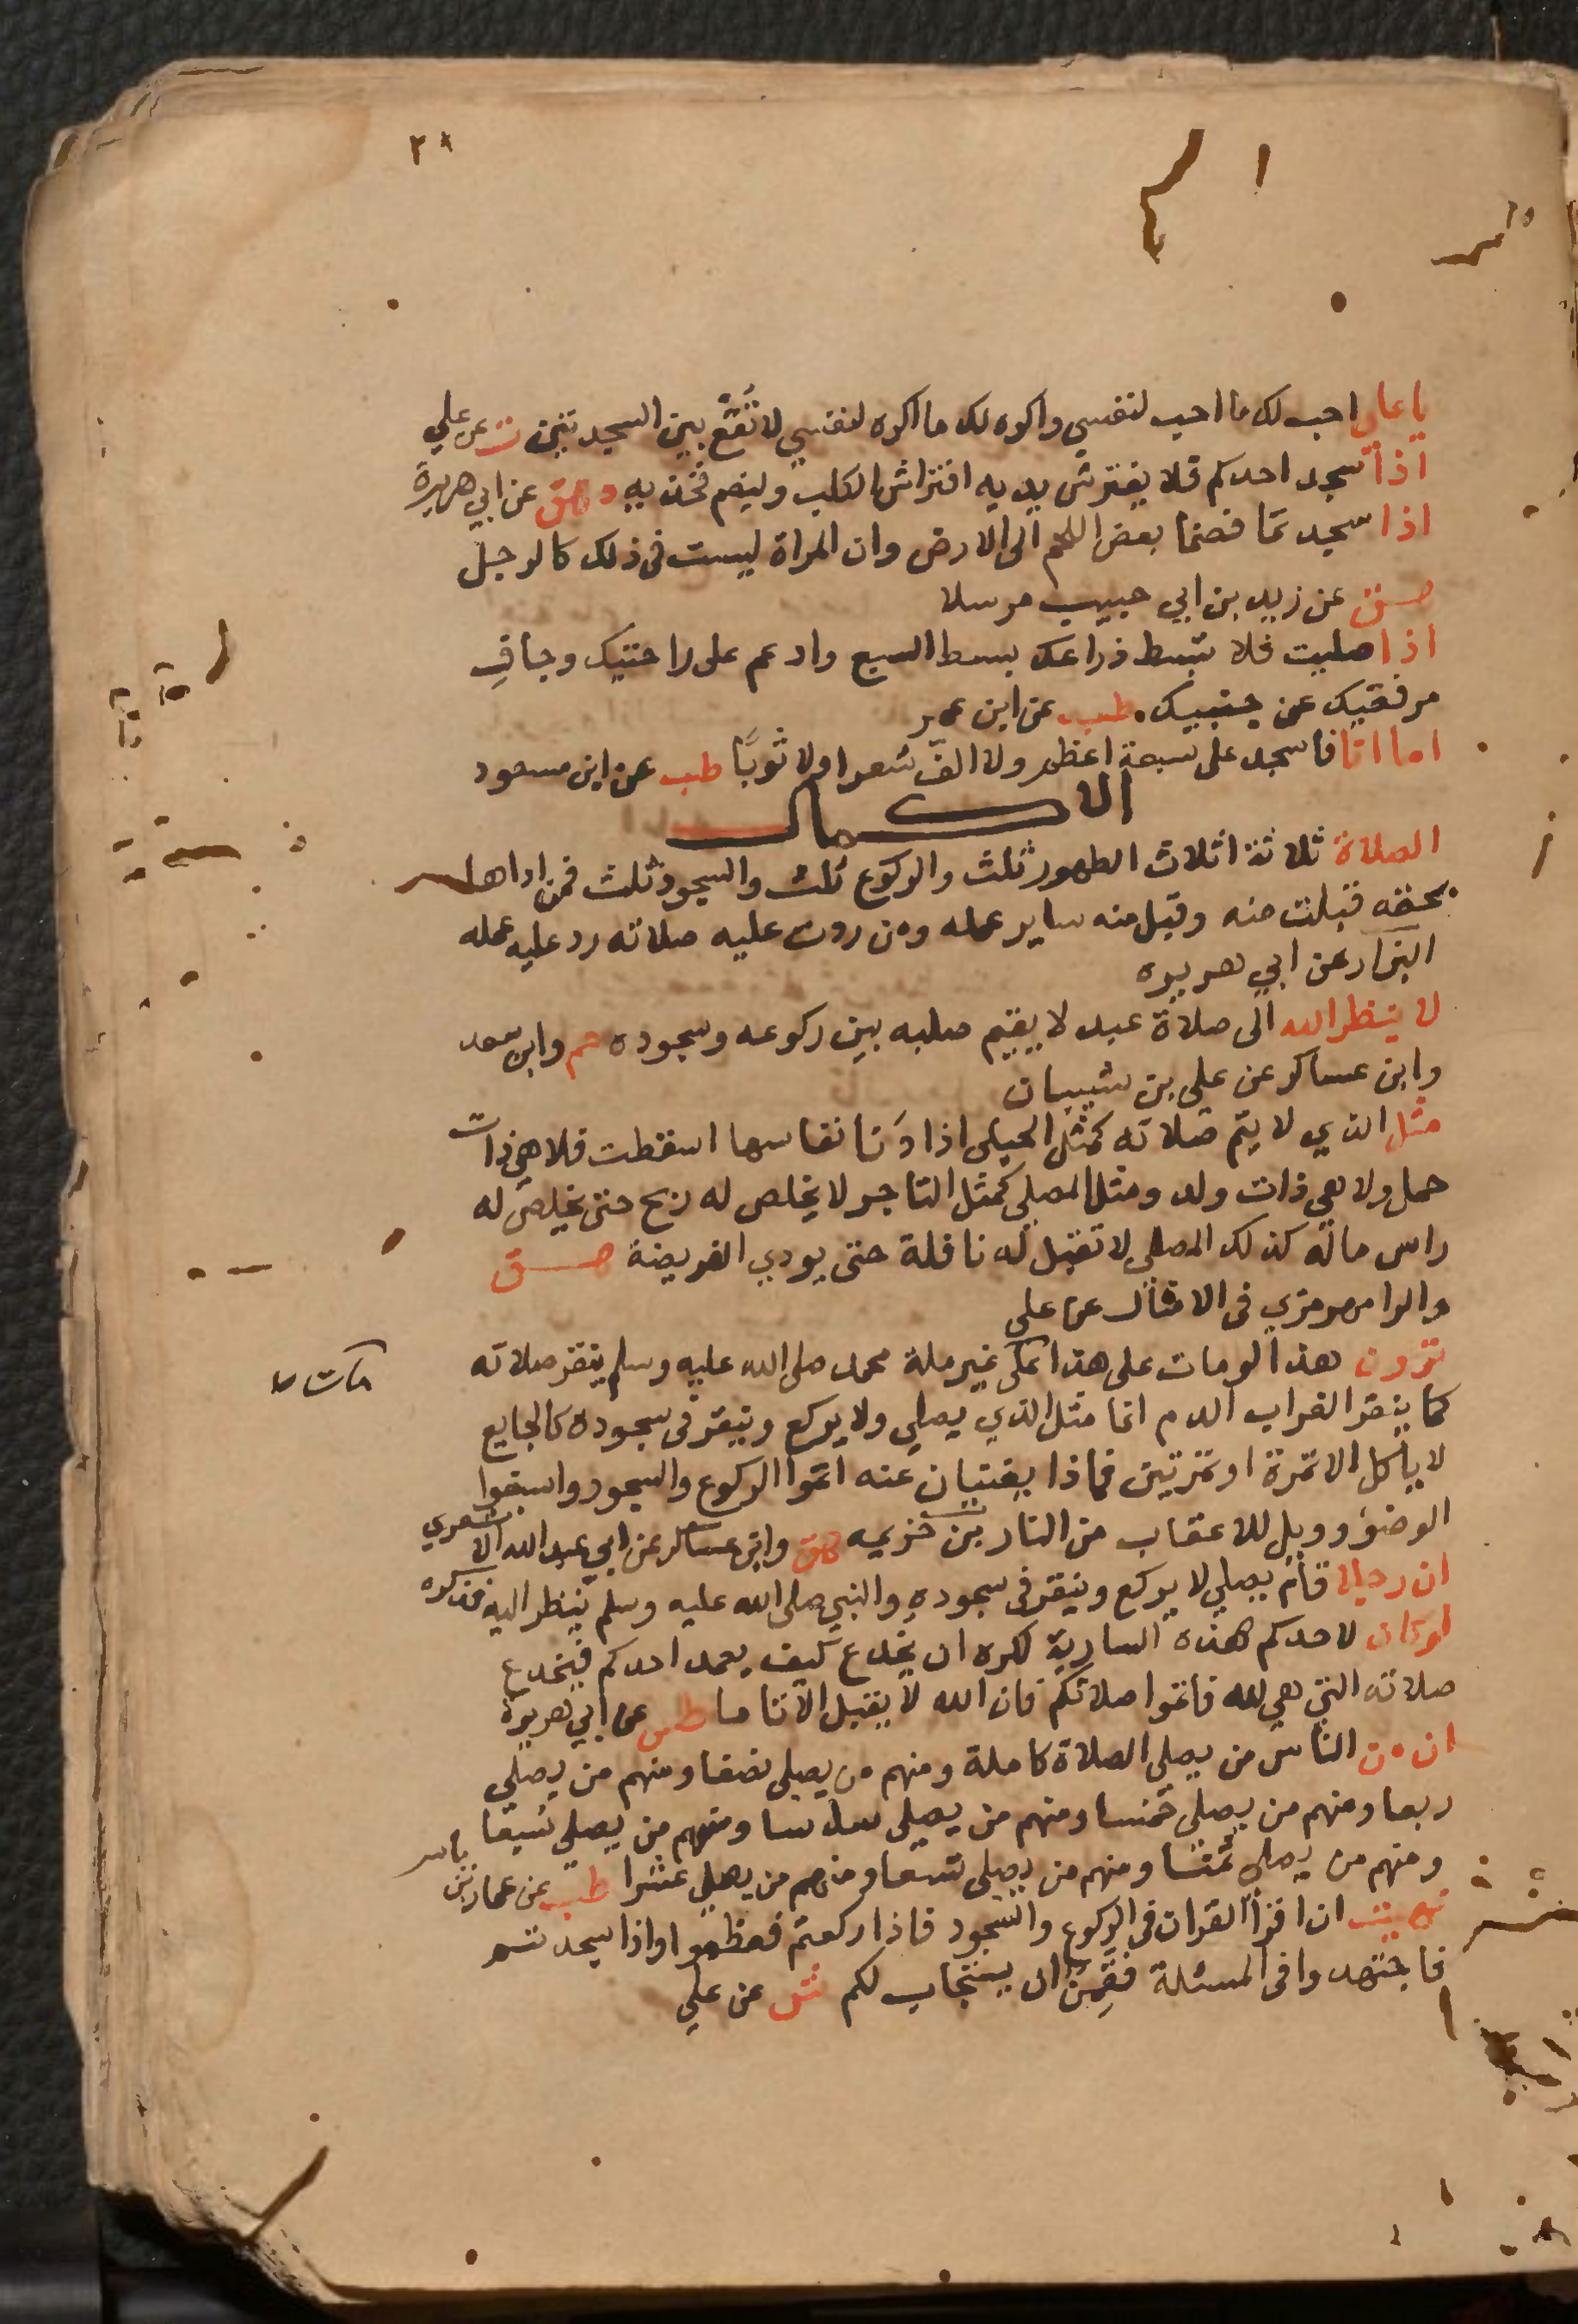 ٢٨
يا علي احب لك ما احب لنفسي واكره لك ما اكره لنفسي لا تُقعِ بين السجدتين ت عن علي
اذا سجد احدكم فلا يفترش يديه افتراش الكلب وليضم فخذيه د هق عن ابي هريرة
اذا سجدتما فضما بعض اللحم الى الارض وان المراة ليست في ذلك كالرجل
هق عن زيد بن ابي حبيب مرسلا
اذا صليت فلا تبسط ذراعك بسط السبع وادعم على راحتيك وجافِ
مرفقيك عن جنبيك. طب عن ابن عمر
اما انا فاسجد على سبعة اعظم ولا الفّ شعرا ولا ثوبًا طب عن ابن مسعود
الاكمال
الصلاة ثلاثة اثلاث الطهور ثلث والركوع ثلث والسجود ثلث فمن اداها
بحقه قبلت منه وقبل منه ساير عمله ومن ردت عليه صلاته رد عليه عمله
البزار عن ابي هريره
لا ينظر الله الى صلاة عبد لا يقيم صلبه بين ركوعه وسجوده حم وابن سعد
وابن عساكر عن علي بن شيبان
مثل الذي لا يتم صلاته كمثل الحبلى اذا دَنا نفاسها اسقطت فلا هي ذات
حمل ولا هي ذات ولد ومثل المصلي كمثل التاجر لا يخلص له ربح حتى يخلص له
راس ماله كذلك المصلي لا تقبل له نافلة حتى يودي الفريضة هق
والرامهرمزي في الامثال عن علي
ترون هذا لو مات على هذا على غير ملة محمد صلى الله عليه وسلم ينقر صلاته
مات
كما ينقر الغراب الدم انما مثل الذي يصلي ولا يركع وينقر في سجوده كالجايع
لا ياكل الا تمرة او تمرتين فماذا يغنيان عنه اتموا الركوع والسجود واسبغوا
الوضؤ وويل للاعقاب من النار بن خزيمه هق وابن عساكر عن ابي عبد الله الاشعري
ان رجلا قام يصلي لا يركع وينقر في سجوده والنبي صلى الله عليه وسلم ينظر اليه فذكره
لو كان لاحدكم هذه السارية لكره ان يخدع كيف يعمد احدكم فيخدع
صلاته التي هي لله فاتموا صلاتكم فان الله لا يقبل الا تاما طس عن ابي هريرة
ان من الناس من يصلي الصلاة كاملة ومنهم من يصلي نصفا ومنهم من يصلي
ربعا ومنهم من يصلي خمسا ومنهم من يصلي سدسا ومنهم من يصلي سبعا
ومنهم من يصلي ثمنا ومنهم من يصلي تسعا ومنهم من يصلي عشرا طب عن عمار بن ياسر
نهيت ان اقرأ القران في الركوع والسجود فاذا ركعتم فعظموا واذا سجدتم
فاجتهدوا في المسئلة فقَمِنٌ ان يستجاب لكم ش عن علي